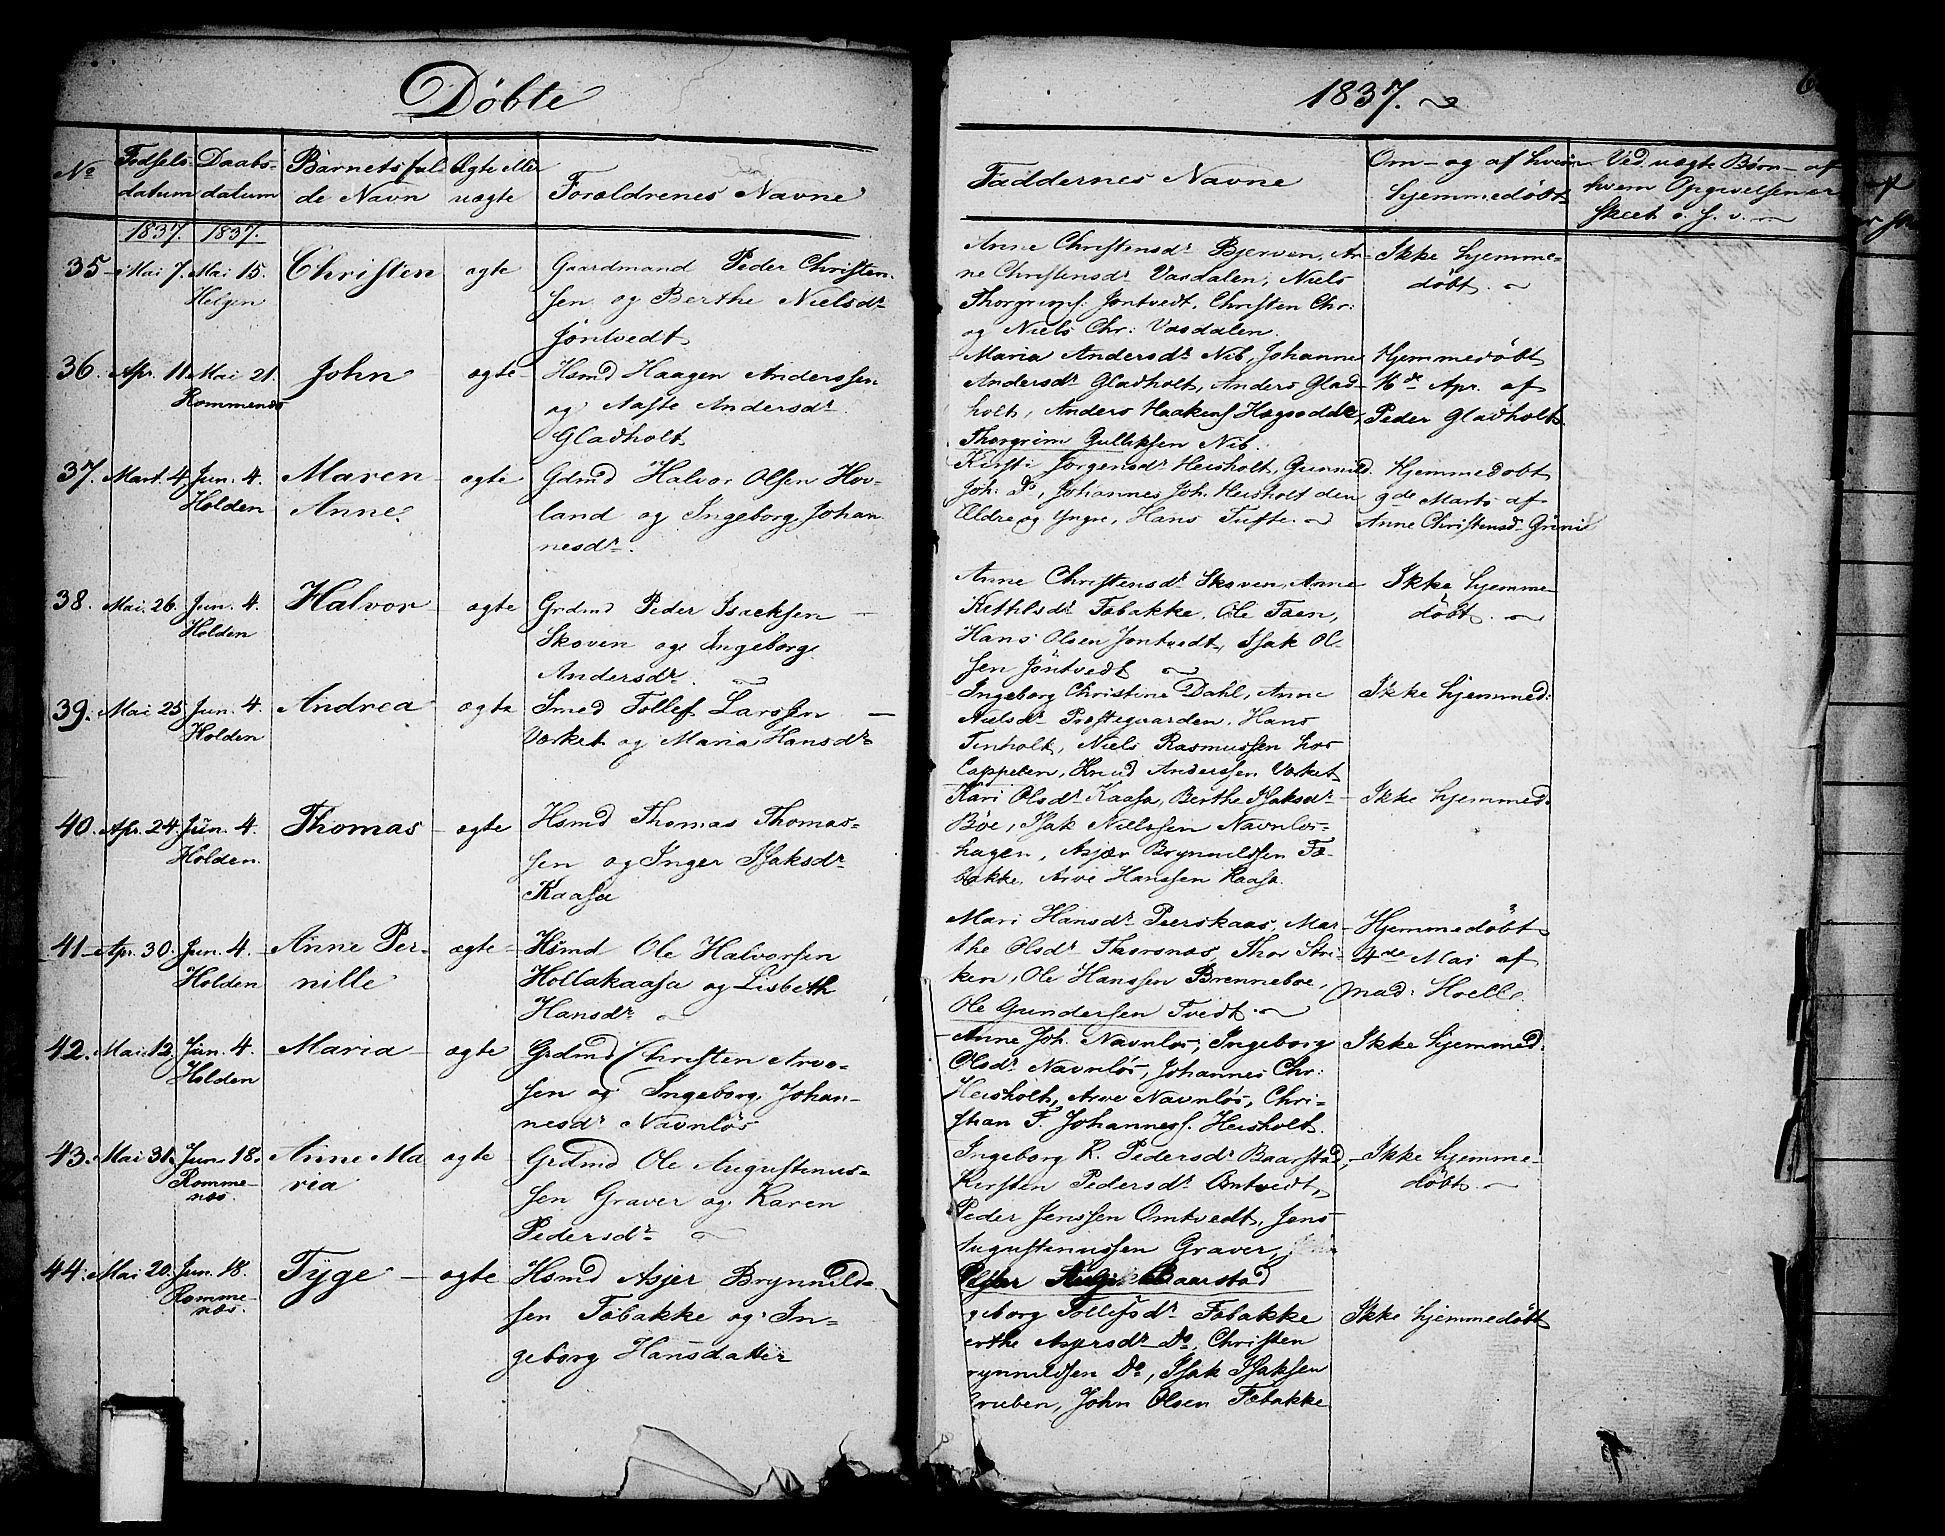 Döbte
1837.
No
Fødsels-
datum
Daabs-
datum
Barnets ful-
de Navn
Ægte eller
uægte
Forældrenes Navne
Faddernes Navne
Om- og af hvem
hjemmedöbt
Ved uægte Børn- af
hvem Opgivelsen er
skeet o. s. v.
1837. 1837.
35 Mai 7. Mai 15. Christen ægte Gaardmand Peder Christen-
Helgen sen og Berthe Nielsdr
Jöntvedt
Anne Christensdr Bjerven, An-
ne Christensdr Vasdalen, Niels
Thorgrims. Jöntvedt, Christen Chr:
og Niels Chr: Vasdalen.
Ikke hjemme-
döbt.
36. Apr. 11. Mai 21. John ægte Hsmd Haagen Anderssen
Rommenæs og Aaste Andersdr
Gladholt
Maria Andersdr Nib, Johanne
Andersdr Gladholt, Anders Glad-
holt, Anders Haakens
Thorgrim Gulliksen Nib.
Hjemmedöbt
Apr. af
Peder Gladholt.
37. Mart. 4. Jun. 4. Maren ægte Gdmd Halvor Olsen Hov-
Holden Anne. land og Ingeborg Johan-
nesdr.
Kirsti Jörgensdr Heisholt, Gunnild
Joh: Do, Johannes Joh. Heisholt den
Ældre og Yngre, Hans Tufte.
Hjemmedöbt
9de Marts af
Anne Christensd.
38. Mai. 26. Jun. 4. Halvor ægte Grdmd Peder Isacksen
Holden Skoven og Ingeborg
Andersdr.
Anne Christensdr Skoven, Anne
Kethilsdr Tobakke, Ole Toen,
Hans Olsen Jöntvedt, Isak Ol-
sen Jöntvedt
Ikke hjemme-
döbt.
39. Mai 25. Jun. 4. Andrea ægte Smed Tollef Larssen
Holden Værket og Maria Hansdr
Ingeborg Christine Dahl, Anne
Nielsdr Præstegaarden, Hans
Tinholt, Niels Rasmussen hos
Cappelen, Knud Anderssen Værket
Ikke hjemmed:
40. Apr. 24. Jun. 4. Thomas ægte Hsmd Thomas Thomas-
Holden. sen og Inger Isaksdr
Kaasa
Kari Olsdr Kaasa, Berthe Isaksdr
Böe, Isak Nielssen Navnlös-
hagen, Asjær Brynnildsen To-
bakke, Arve Hanssen Kaasa.
Ikke hjemmed.
41 Apr. 30. Jun. 4. Anne Per- ægte Hsmd Ole Halvorsen
Holden nille Hollakaasa og Lisbeth
Hansdr
Mari Hansdr Peerskaas, Mar-
the Olsdr Thorsnæs, Thor Stri-
ken, Ole Hanssen Brenneboe,
Ole Gundersen Tvedt.
Hjemmedöbt
4de Mai af
Mad: Hoell.
42. Mai. 12. Jun. 4. Maria ægte Grdmd Christen Arve-
Holden sen og Ingeborg Johan-
nesdr Navnlös
Anne Joh. Navnlös, Ingeborg
Olsdr Navnlös, Johannes Chr:
Heisholt, Arve Navnlös, Chri-
stian F. Johanness. Heisholt.
Ikke hjemmed:
43. Mai 31. Jun. 18. Anne Ma ægte Grdmd Ole Augustinus-
Romme- ria sen Graver og Karen
næs. Pedersdr
Ingeborg K. Pedersdr Baarstad,
Kirsten Pedersdr Omtvedt,
Peder Jenssen Omtvedt, Jens
Augustinussen Graver,
Baarstad
Ikke hjemme-
döbt.
44. Mai 20. Jun. 18. Tyge ægte Hsmd Asjer Brynnild-
Romme- sen Tobakke og In-
næs. geborg Hansdatter
geborg Tollefsdr Tobakke
erthe Asjersdr Do, Christen
rynnildsen Do, Isak Isaksen
Gruben, John Olsen Tobakke
Ikke hjemmedöbt